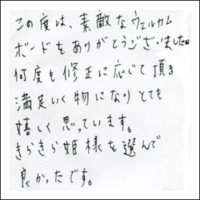 この度は、素敵なウェルカム
ボードをありがとうございました。
何度も修正に応じて頂き
満足いく物になりとても
嬉しく思っています。
きらきら姫様を選んで
良かったです。